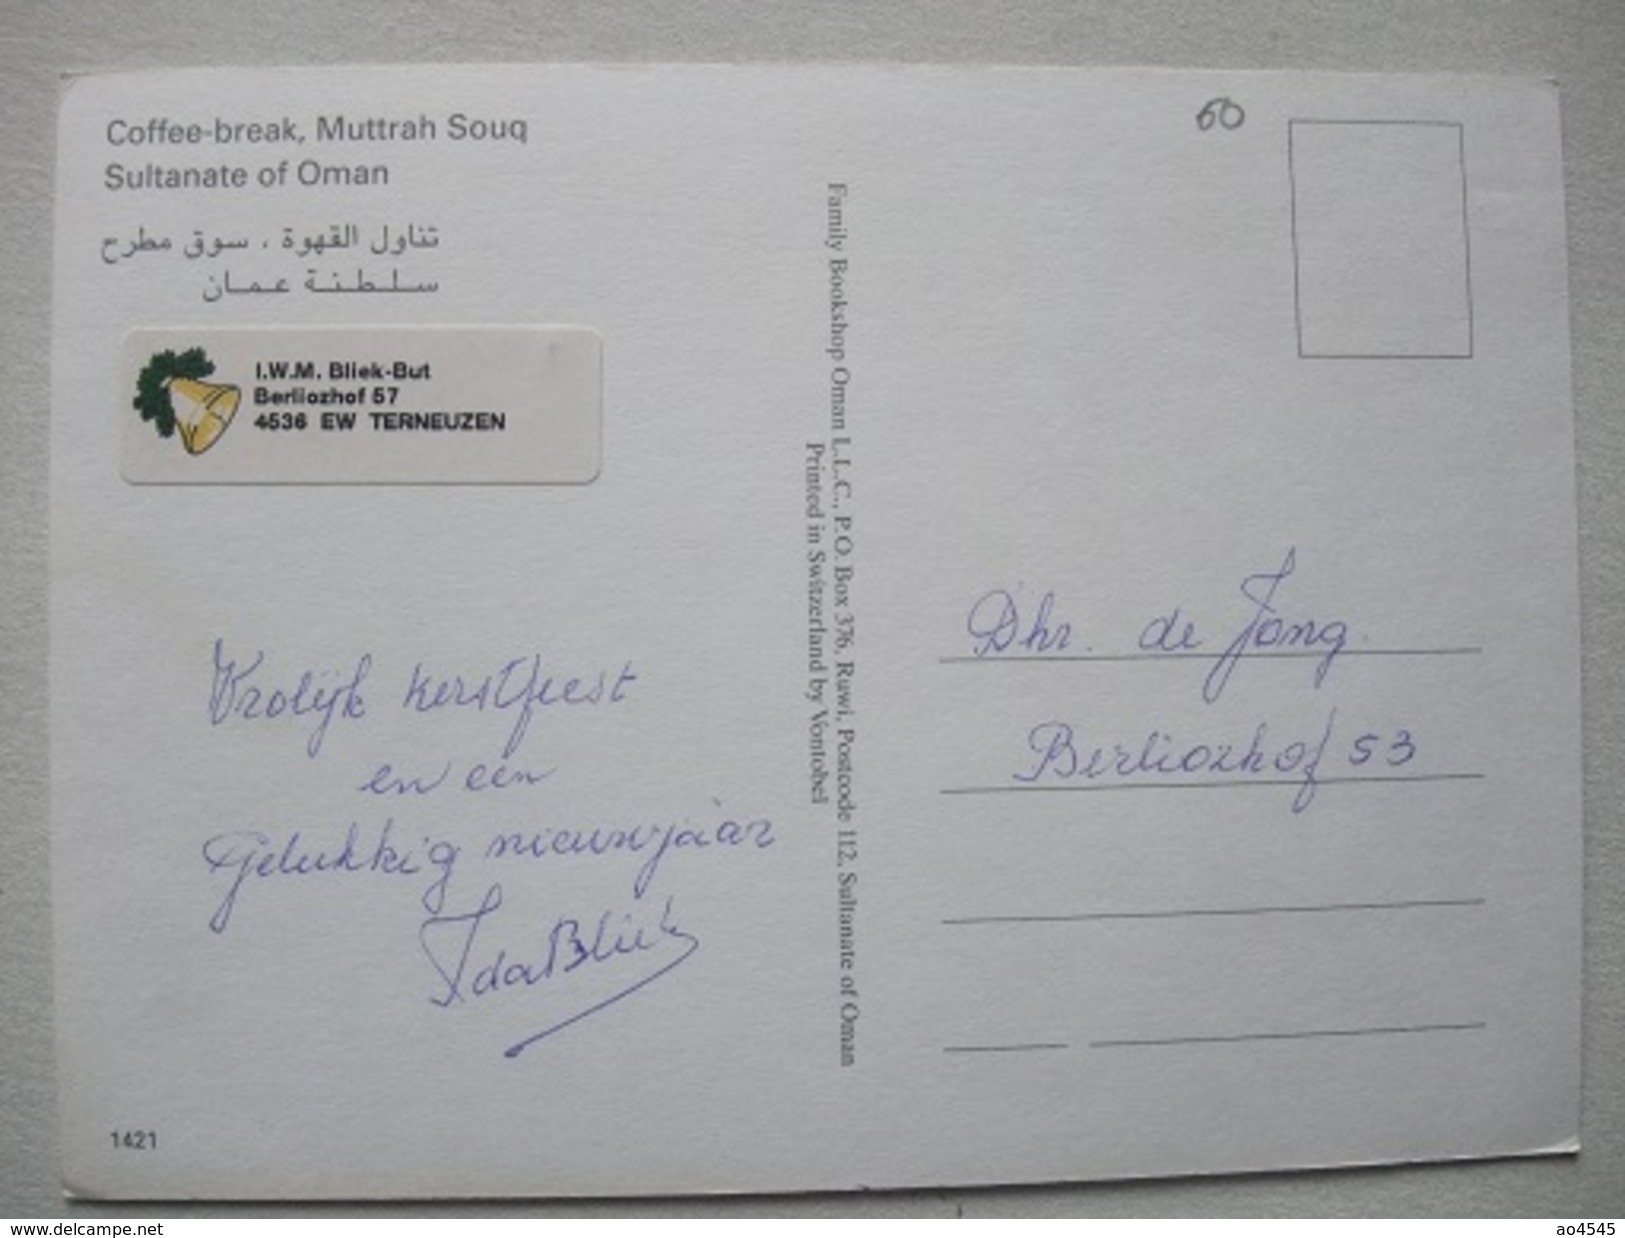 Coffee-break, Muttrah Souq
Sultanate of Oman
تناول القهوة ، سوق مطرح
سلطنة عمان
I.W.M. Bliek-But
Berliozhof 57
4536 EW TERNEUZEN
Vrolijk kerstfeest
en een
Gelukkig nieuwjaar
Ida Bliek
1421
Family Bookshop Oman L.L.C., P.O. Box 376, Ruwi, Postcode 112, Sultanate of Oman
Printed in Switzerland by Vontobel
60
Dhr. de Jong.
Berliozhof 53
www.delcampe.net
ao4545